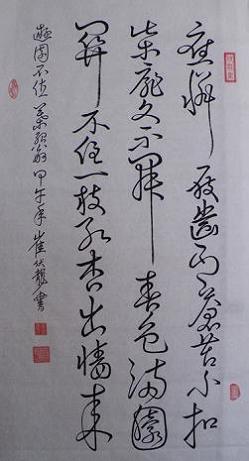 應憐屐齒印蒼苔小扣
柴扉久不開春色滿園
關不住一枝紅杏出牆來
遊園不值葉紹翁甲午年崔伏龍書